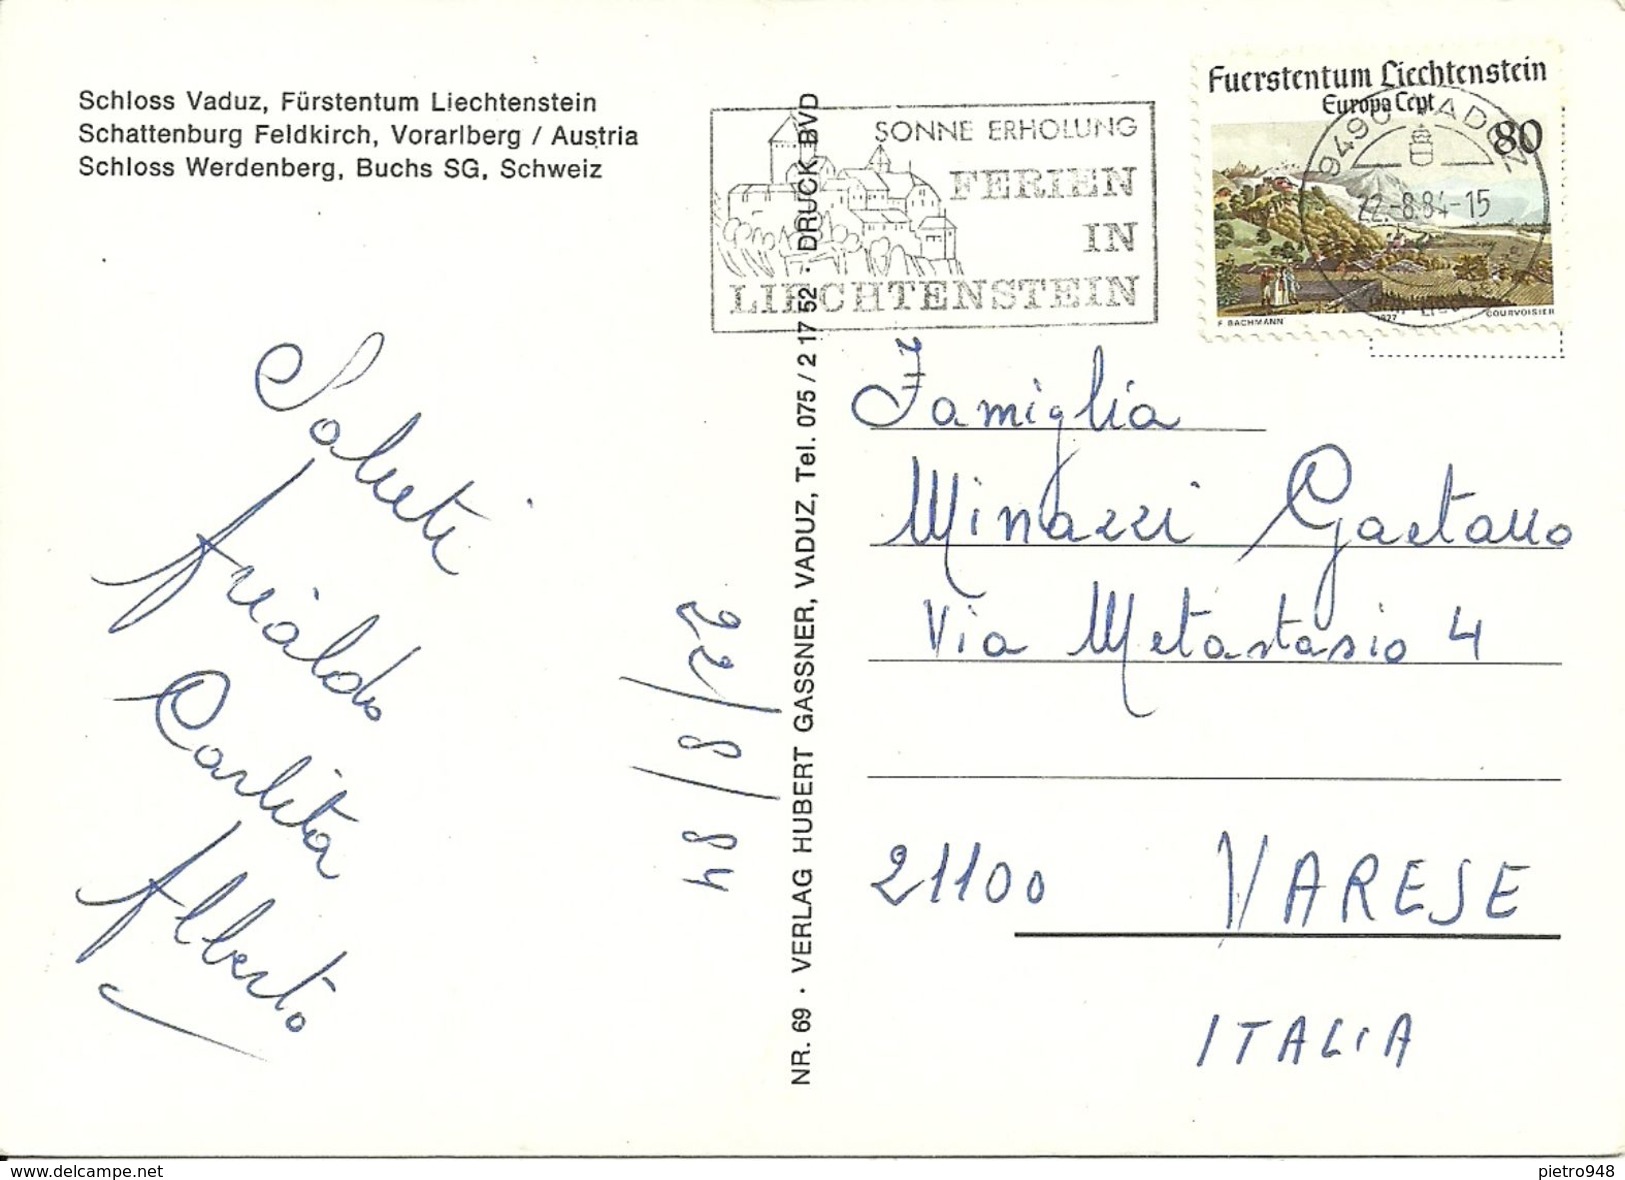 Schloss Vaduz, Fürstentum Liechtenstein
Schattenburg Feldkirch, Vorarlberg / Austria
Schloss Werdenberg, Buchs SG, Schweiz
SONNE ERHOLUNG
FERIEN
IN
LIECHTENSTEIN
Fuerstentum Liechtenstein
Europa Cept
80
9490 VADUZ
22.-8.84-15
F BACHMANN
1977
COURVOISIER
Saluti
Carlita
Alberto
22/8/84
NR. 69 · VERLAG HUBERT GASSNER, VADUZ, Tel. 075 / 2 17 52 · DRUCK BVD
Famiglia
Minazzi Gaetano
Via Metastasio 4
21100 VARESE
ITALIA
www.delcampe.net
pietro948